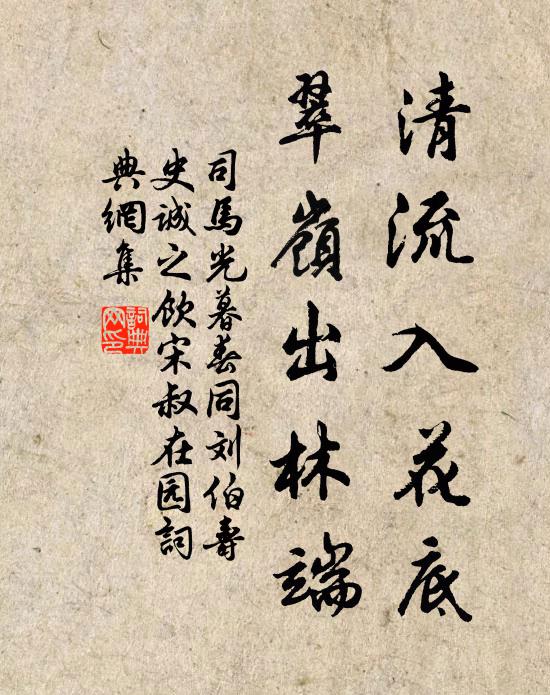 清流入花底
翠嶺出林端
司馬光暮春同刘伯壽
史诚之饮宋叔在园詞
典網集
詞典网印